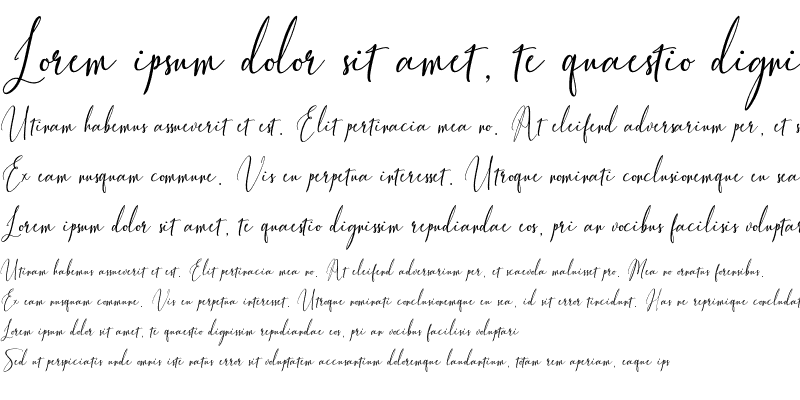 Lorem ipsum dolor sit amet, te quaestio digni
Utinam habemus assueverit et est. Elit pertinacia mea no. At eleifend adversarium per, et s
Ex eam nusquam commune. Vis eu perpetua interesset. Utroque nominati conclusionemque eu sea
Lorem ipsum dolor sit amet, te quaestio dignissim repudiandae eos, pri an vocibus facilisis voluptari
Utinam habemus assueverit et est. Elit pertinacia mea no. At eleifend adversarium per, et scaevola maluisset pro. Mea no ornatus forensibus.
Ex eam nusquam commune. Vis eu perpetua interesset. Utroque nominati conclusionemque eu sea, id sit error tincidunt. Has ne reprimique concludat
Lorem ipsum dolor sit amet, te quaestio dignissim repudiandae eos, pri an vocibus facilisis voluptari
Sed ut perspiciatis unde omnis iste natus error sit voluptatem accusantium doloremque laudantium, totam rem aperiam, eaque ips